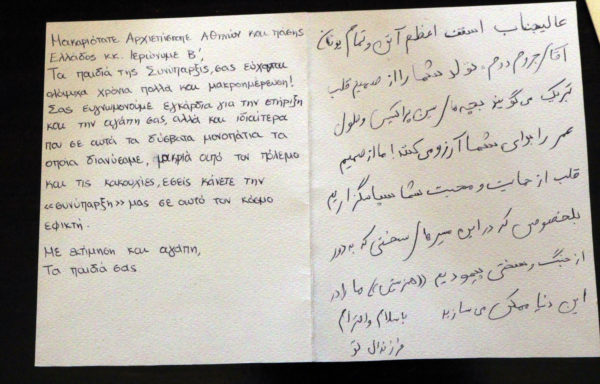 Μακαριότατε Αρχιεπίσκοπε Αθηνών και πάσης
Ελλάδος κ.κ. Ιερώνυμε Β',
Τα παιδιά της Συνύπαρξις, σας εύχονται
ολόψυχα χρόνια πολλά και μακροημέρευση!
Σας ευγνωμονούμε εγκάρδια για την στήριξη
και την αγάπη σας, αλλά και ιδιαίτερα
που σε αυτά τα δύσβατα μονοπάτια τα
οποία διανύσαμε, μακριά από τον πόλεμο
και τις κακουχίες, εσείς κάνετε την
«συνύπαρξη» μας σε αυτό τον κόσμο
εφικτή.
Με εκτίμηση και αγάπη,
Τα παιδιά σας
عالیجناب اسقف اعظم آتن و تمام یونان
آقای جروم دوم، تولد شما را از صمیم قلب
تبریک می گویند بچه های و طول
عمر را برای شما آرزو می کنند! ما از صمیم
قلب از حمایت و محبت شما سپاسگزاریم
بلخصوص که در این مسیر های سختی که به دور
از جنگ و سختی پیمودیم ((همزیستی)) ما را در
این دنیا ممکن می سازید
باسلام و احترام
فرزندان تو